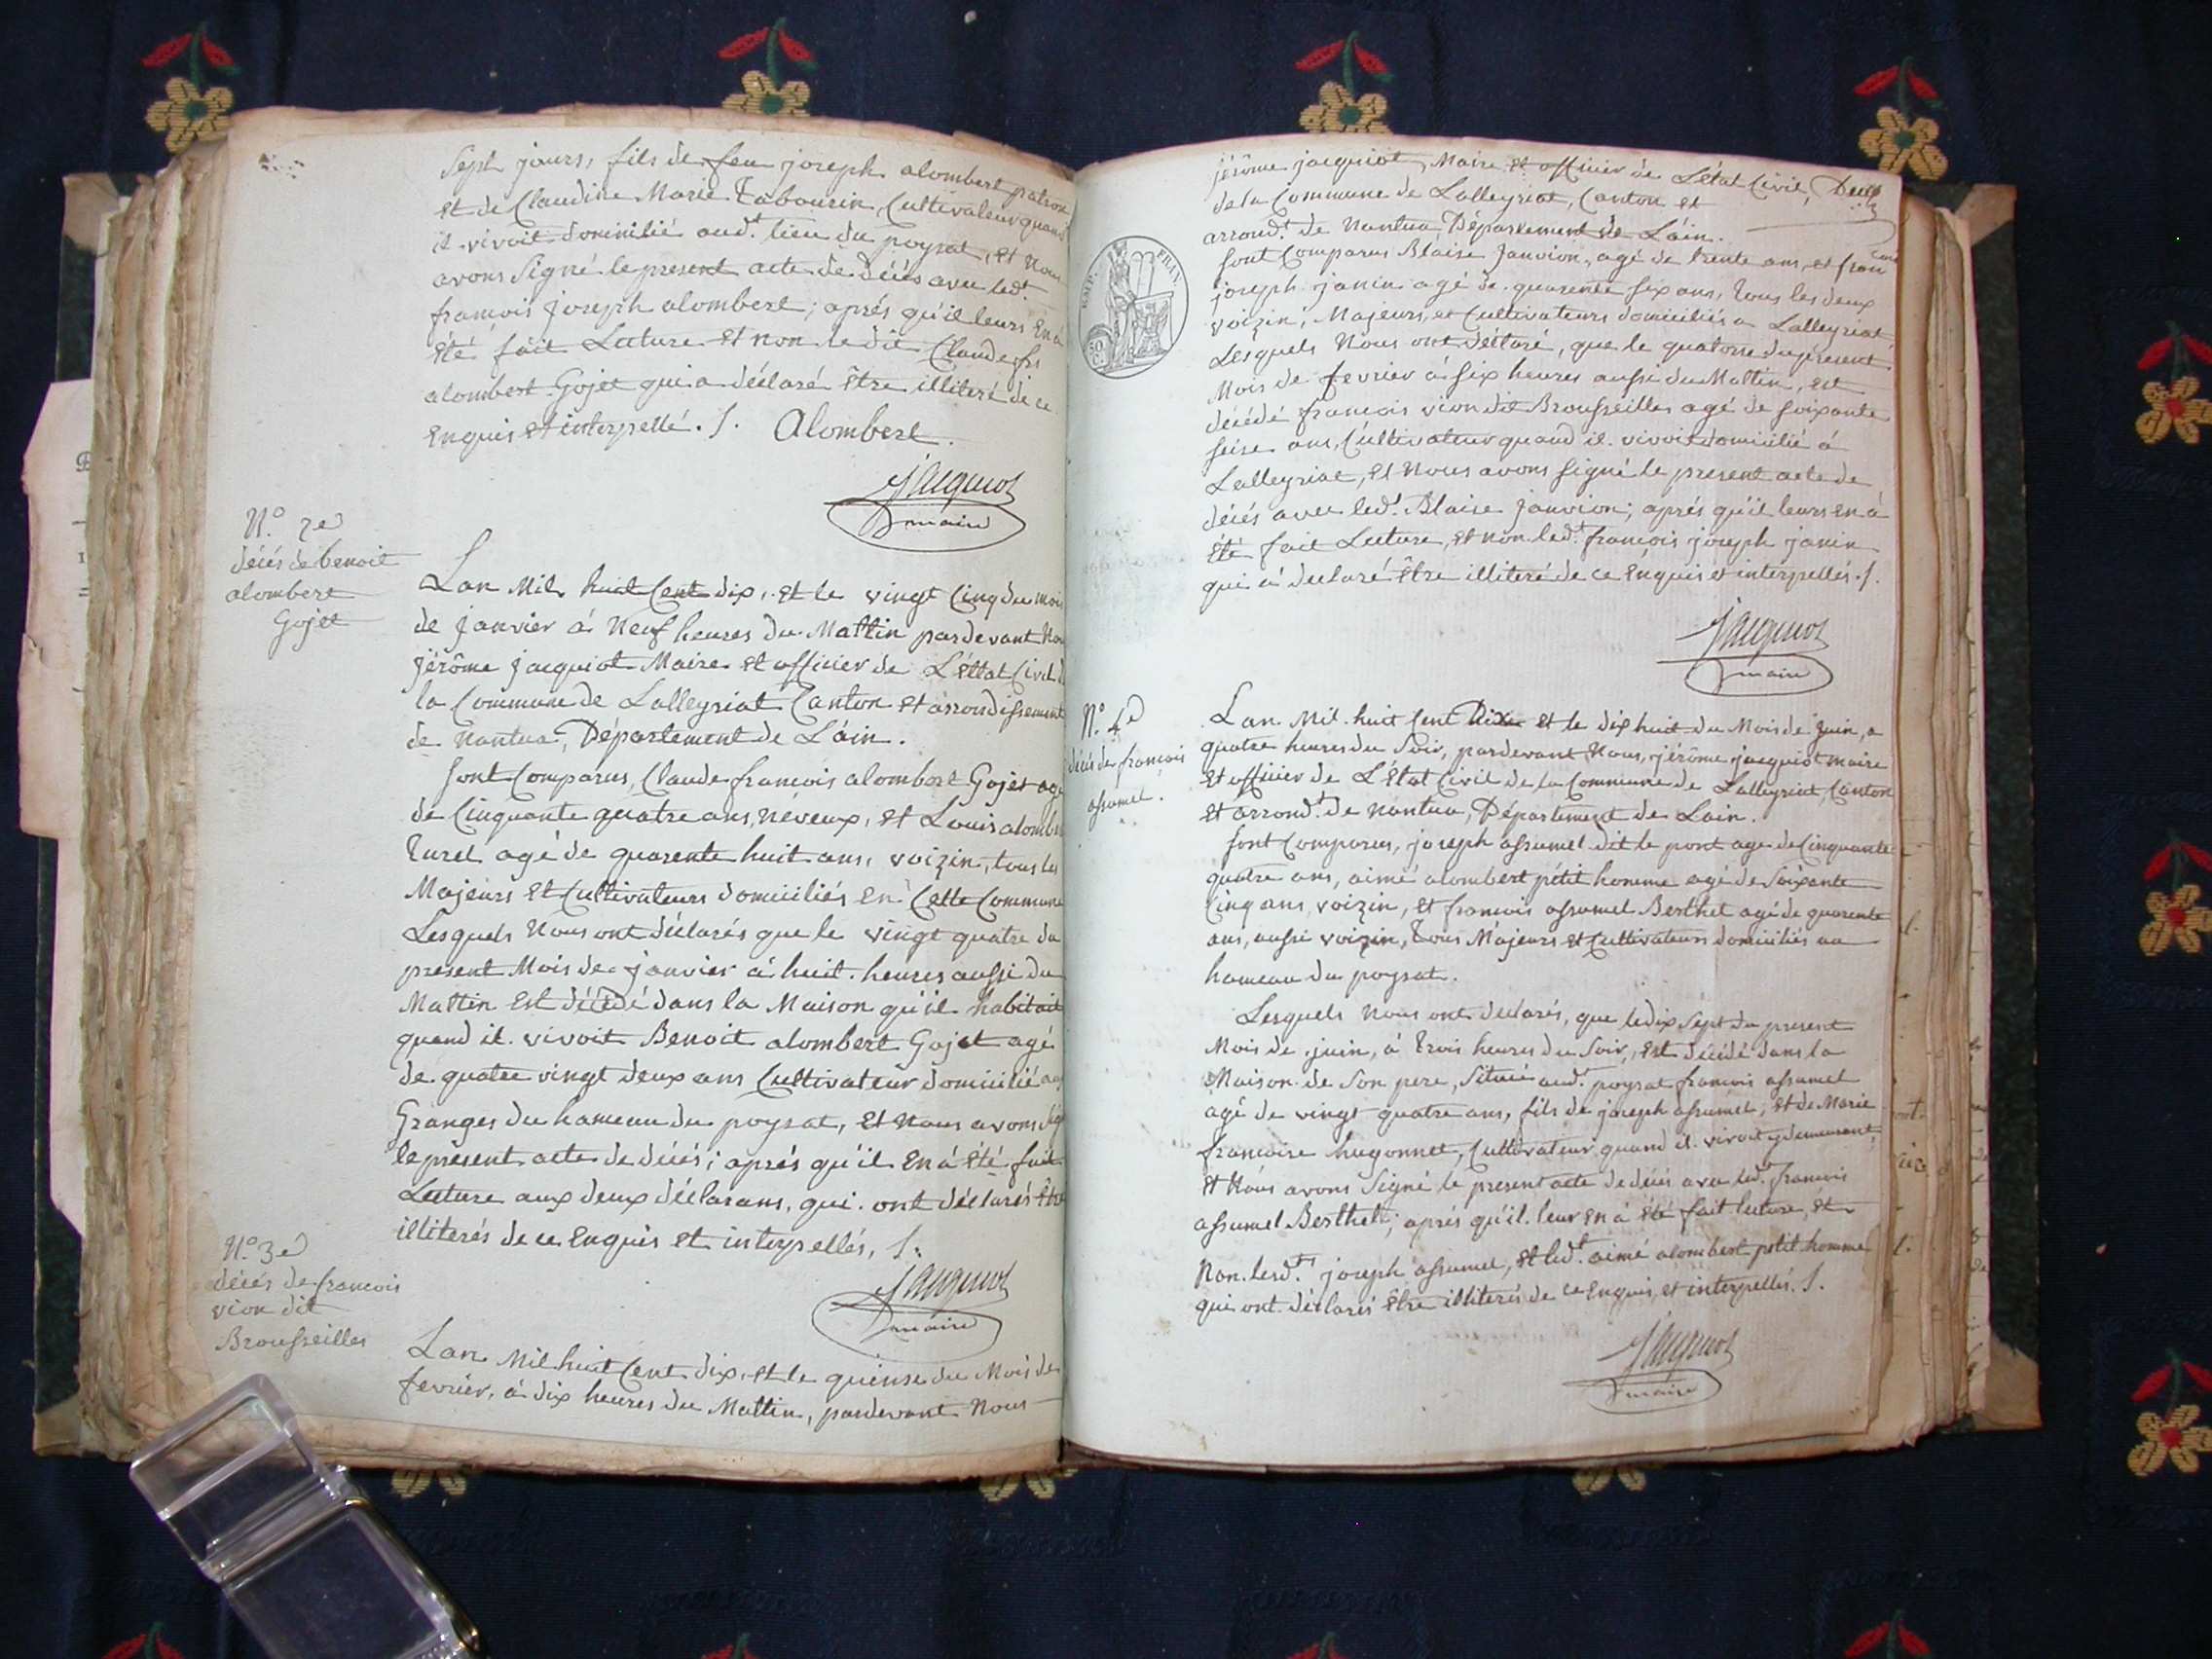 Sept jours, fils de feu joseph alombert patron
et de Claudine Marie Tabourin, Cultivateur quand
il vivoit domicilié aud.t lieu du poysat, et Nous
avons Signé le present acte de décés avec led.t
francois joseph alombert; aprés qu'il leurs En a
été fait Lecture et non le dit Claude fs
alombert Gojet qui a déclaré être illiteré de ce
enquis et interpellé. /. Alombert.
Jacquiot
maire
N.o 2e
décés de benoit
alombert
Gojet
Lan Mil huit Cent dix, et le vingt Cinq du mois
de janvier à Neuf heures du Mattin pardevant Nou
jérôme jacquiot Maire et officier de L'éttat Civil d
la Commune de Lalleyriat Canton et arrondissement
de Nantua, Département de L'ain.
Sont Comparus, Claude francois alombert Gojet agé
de Cinquante quatre ans, néveux, et Louis alombe
Turel agé de quarente huit ans, voizin, tous les
Majeurs et Cultivateurs domiciliés en Cette Commune
Lesquels Nous ont déclarés que le vingt quatre du
present Mois de janvier à huit heures aussi du
Mattin Est décédé dans la Maison qu'il habitoit
quand il vivoit Benoit alombert Gojet agé
de quatre vingt deux ans Cultivateur domicilié aux
Granges du hameau du poysat, et Nous avons sig
le présent acte de décés; aprés qu'il en à été fait
Lecture aux deux déclarans, qui ont déclarés être
illiterés de ce Enquis et interpellés, /.
Jacquiot
maire
N.o 3e
décés de francois
vion dit
Brousseilles
Lan Mil huit Cent dix, et le quinse du Mois de
fevrier, à dix heures du Mattin, pardevant Nous
jérôme jacquiot, Maire et officier de L'état Civil,
de la Commune de Lalleyriat, Canton et
arrond.t de Nantua, Département de L'ain.
EMP. FRAN.
50 C.
Sont Comparus Blaise Janvion, agé de trente ans, et fran
joseph janin agé de quarente six ans, tous les deux
voizin, Majeurs, et Cultivateurs domiciliés a Lalleyriat
Lesquels Nous ont déclaré, que le quatorse du present
Mois de fevrier à six heures aussi du Mattin, est
décédé francois vion dit Brousseilles agé de soixante
seise ans, Cultivateur quand il vivoit domicilié à
Lalleyriat, et Nous avons signé le present acte de
décés avec led.t Blaise janvion; aprés qu'il leurs en à
été fait Lecture, et non led.t françois joseph janin
qui à declaré être illiteré de ce Enquis et interpellés. /.
Jacquiot
maire
N.o 4e
décés de françois
assumel.
Lan Mil huit Cent Dixe et le dix huit du Mois de juin, a
quatre heures du Soir, pardevant Nous, jérôme jacquiot maire
et officier de L'état Civil de la Commune de Lalleyriat, Canton
et arrond.t de Nantua, Département de Lain.
Sont Comparus, joseph assumel dit le pont age de Cinquante
quatre ans, aimé alombert pétit homme agé de Soixante
Cinq ans voizin, et francois assumel Berthet agé de quarente
ans, aussi voizin, tous Majeurs et Cultivateurs domiciliés au
hameau du poysat.
Lesquels Nous ont declarés, que le dix Sept du present
Mois de juin, à trois heures du Soir, est décédé dans la
Maison de Son pere, Située aud.t poysat francois assumel
agé de vingt quatre ans, fils de joseph assumel, et de Marie
francoise hugonnet, Cultivateur quand il vivoit y demeurant,
et Nous avons Signé le present acte de décés avec led.t francois
assumel Berthet; aprés qu'il leur en à été fait lecture, et
Non lesd.ts joseph assumel, et led.t aimé alombert petit homme
qui ont déclarés être illiterés de ce Enquis, et interpellés. /.
Jacquiot
maire